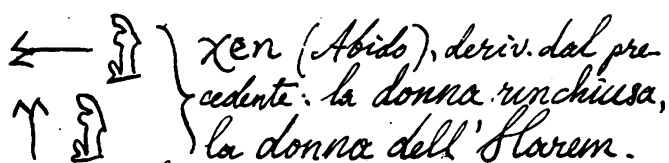 χen (Abido), deriv. dal pre-
cedente: la donna rinchiusa,
la donna dell'Harem.